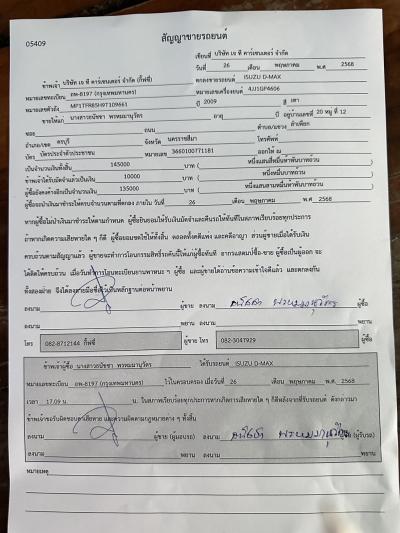 สัญญาขายรถยนต์
05409
เขียนที่ บริษัท เจ ที คาร์เซนเตอร์ จำกัด
วันที่ 26 เดือน พฤษภาคม พ.ศ. 2568
ข้าพเจ้า บริษัท เจ ที คาร์เซนเตอร์ จำกัด (กี้ฟซี่) ตกลงขายรถยนต์ ISUZU D-MAX
หมายเลขทะเบียน อพ-8197 (กรุงเทพมหานคร) หมายเลขเครื่องยนต์ 4JJ1GP4606
หมายเลขตัวถัง MP1TFR85H9T109661 ปี 2009 สี เทา
ขายให้แก่ นางสาวธนัชชา พรหมมานุวัตร อายุ ปี อยู่บ้านเลขที่ 20 หมู่ที่ 12
ซอย ถนน ตำบล/แขวง ลำเพียก
อำเภอ/เขต ครบุรี จังหวัด นครราชสีมา โทรศัพท์
บัตร บัตรประจำตัวประชาชน หมายเลข 3660100771181 ออกให้ ณ
เป็นจำนวนเงินทั้งสิ้น 145000 บาท ( หนึ่งแสนสี่หมื่นห้าพันบาทถ้วน )
ข้าพเจ้าได้รับมัดจำแล้วเป็นเงิน 10000 บาท ( หนึ่งหมื่นบาทถ้วน )
ผู้ซื้อยังคงค้างอีกเป็นจำนวนเงิน 135000 บาท ( หนึ่งแสนสามหมื่นห้าพันบาทถ้วน )
ผู้ซื้อจะนำเงินมาชำระให้ครบจำนวนตามที่ตกลง ภายใน วันที่ 26 เดือน พฤษภาคม พ.ศ 2568
หากผู้ซื้อไม่นำเงินมาชำระให้ตามกำหนด ผู้ซื้อยินยอมให้รับเงินมัดจำและคืนรถให้ทันทีในสภาพเรียบร้อยทุกประการ
ถ้าหากเกิดความเสียหายใด ๆ ก็ดี ผู้ซื้อยอมชดใช้ให้ทั้งสิ้น ตลอดทั้งคดีแพ่ง และคดีอาญา ส่วนผู้ขายเมื่อได้รับเงิน
ครบถ้วนตามสัญญาแล้ว ผู้ขายจะทำการโอนกรรมสิทธิ์รถคันนี้ให้แก่ผู้ซื้อทันที
ทั้งสองฝ่าย จึงได้ลงลายมือชื่อไว้เป็นหลักฐานต่อหน้าพยาน
ลงนาม ผู้ขาย ลงนาม ผู้ซื้อ
ลงนาม พยาน ลงนาม พยาน
โทร 082-8712144 กี้ฟซี่ ผู้ขาย โทร 082-3047929 ผู้ซื้อ
ข้าพเจ้าผู้ซื้อ นางสาวธนัชชา พรหมมานุวัตร ได้รับรถยนต์ ISUZU D-MAX
หมายเลขทะเบียน อพ-8197 (กรุงเทพมหานคร) ไว้ในครอบครอง เมื่อวันที่ 26 เดือน พฤษภาคม พ.ศ. 2568
เวลา 17.09 น. น. ในสภาพเรียบร้อยทุกประการหากเกิดการเสียหายใด ๆ ก็ดีหลังจากที่รับรถยนต์ ดังกล่าวมา
ข้าพเจ้าจะรับผิดชอบค่าเสียหาย และความผิดตามกฎหมายต่าง ๆ ทั้งสิ้น
ลงนาม ผู้ขาย (ผู้มอบรถ) ลงนาม ผู้ซื้อ (ผู้รับรถ)
ลงนาม พยาน ลงนาม พยาน
หมายเหตุ